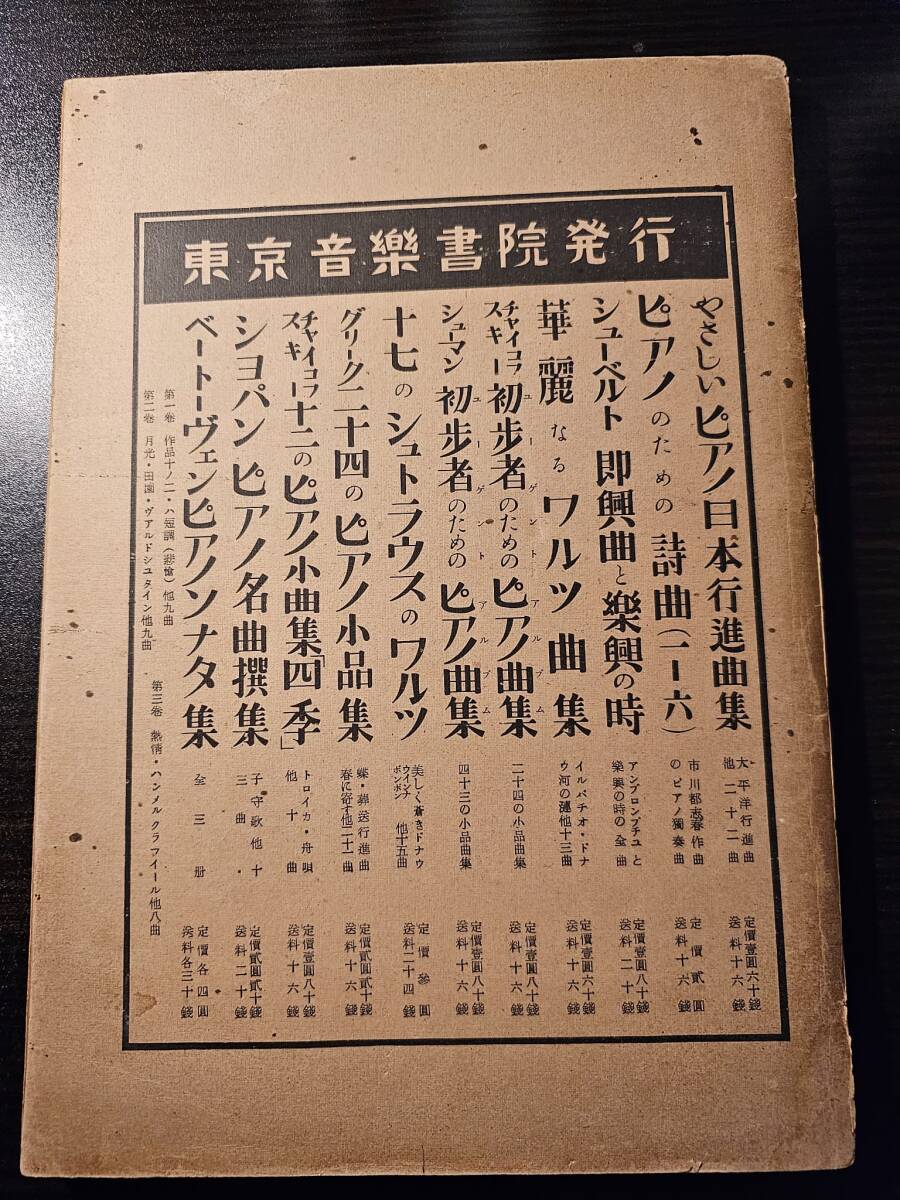 東京音樂書院発行
やさしいピアノ日本行進曲集
太平洋行進曲
他二十二曲
定價壹圓六十錢
送料十六錢
ピアノのための詩曲(一ー六)
市川都志春作曲
のピアノ獨奏曲
定價貳圓
送料十六錢
シューベルト 即興曲と樂興の時
アンプロンプチュと
樂興の時の全曲
定價壹圓八十錢
送料二十錢
華麗なるワルツ曲集
イルバチオ・ドナ
ウ河の漣他十三曲
定價壹圓六十錢
送料十六錢
チャイコフスキー 初歩者のためのピアノ曲集
ユーゲントアルブム
二十四の小品曲集
定價壹圓八十錢
送料十六錢
シューマン 初歩者のためのピアノ曲集
ユーゲントアルブム
四十三の小品曲集
定價壹圓八十錢
送料十六錢
十七のシュトラウスのワルツ
美しく蒼きドナウ
ウインナボンボン 他十五曲
定價參圓
送料二十四錢
グリーク二十四のピアノ小品集
蝶・葬送行進曲
春に寄す他二十一曲
定價貳圓貳十錢
送料十六錢
チャイコフスキー 十二のピアノ小曲集「四季」
トロイカ・舟唄
他十曲
定價壹圓八十錢
送料十六錢
ショパンピアノ名曲撰集
子守歌他十
三曲・
定價貳圓貳十錢
送料二十錢
ベートーヴェンピアノソナタ集
全三册
定價各四圓
送料各三十錢
第一卷 作品十ノ二・ハ短調(悲愴)他九曲
第三卷 熱情・ハンメルクラフイール他八曲
第二卷 月光・田園・ヴアルドシユタイン他九曲